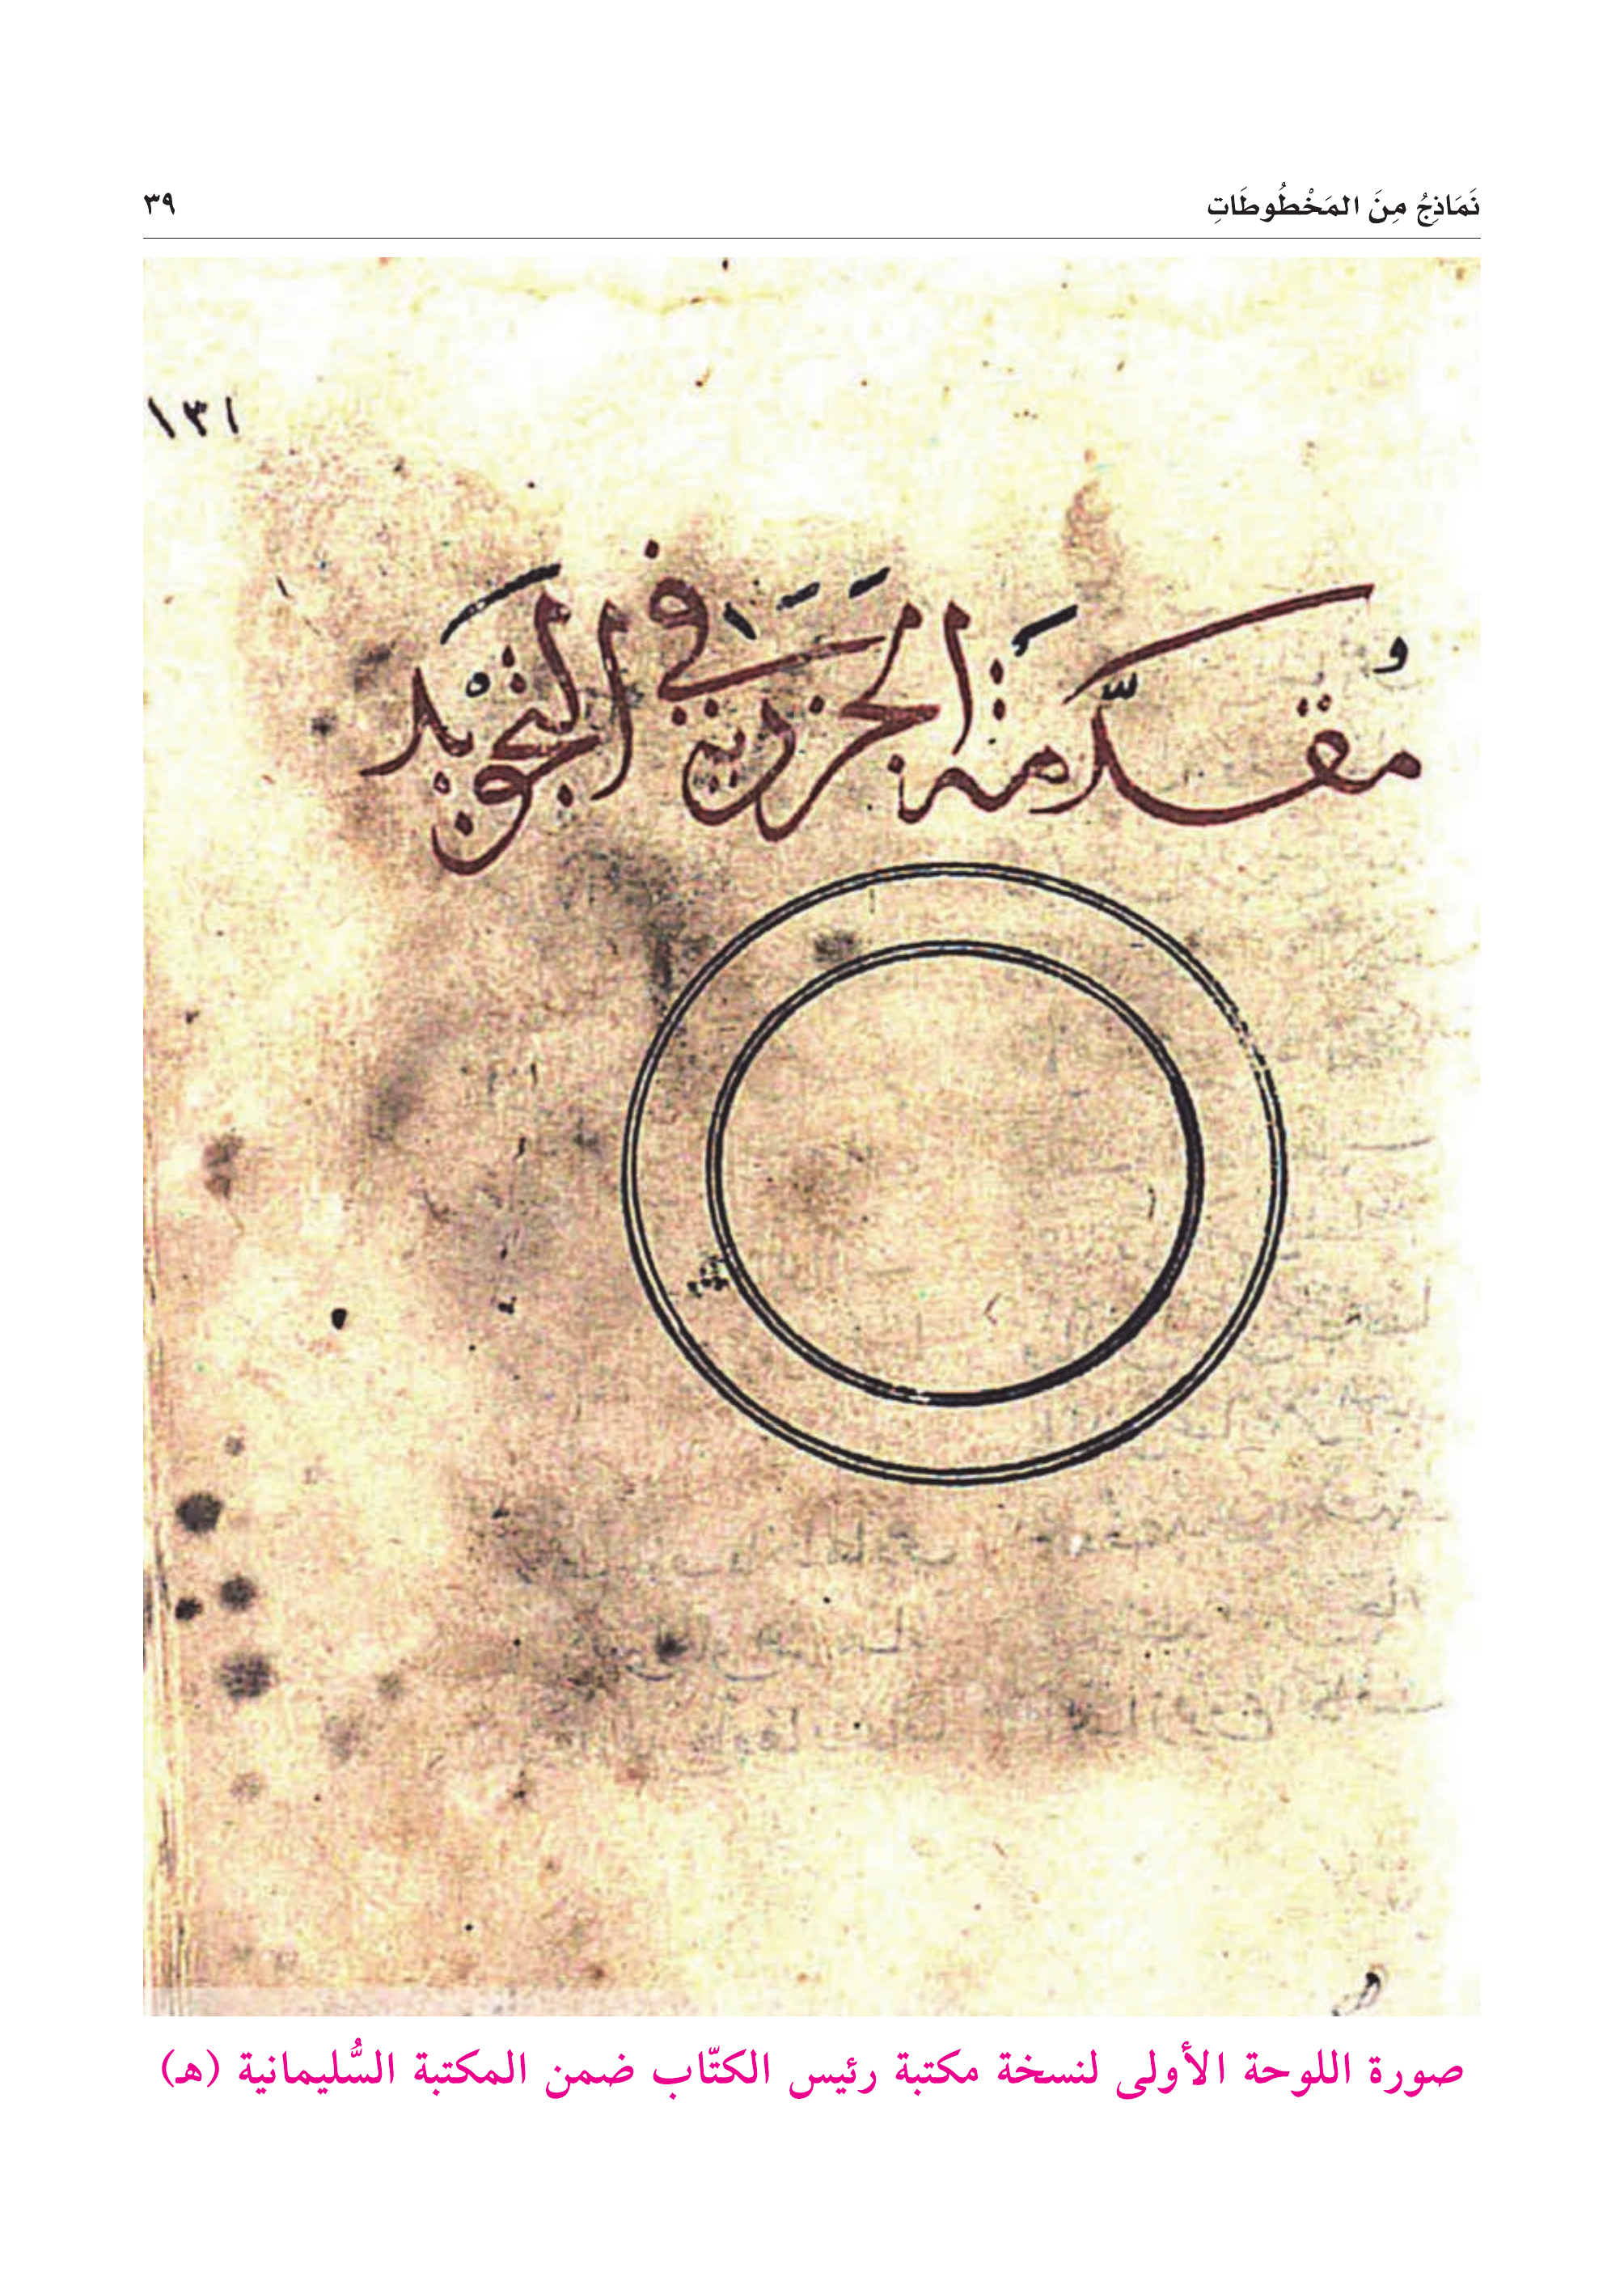 نَمَاذِجُ مِنَ المَخْطُوطَاتِ
٣٩
١٣١
مقدّمة الجزرية في التجويد
صورة اللوحة الأولى لنسخة مكتبة رئيس الكتّاب ضمن المكتبة السُّليمانية (هـ)